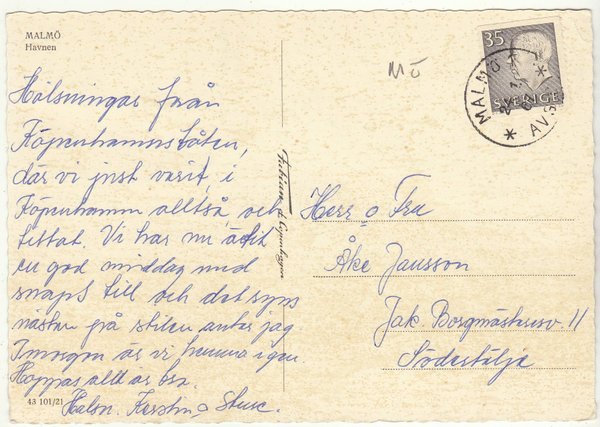 MALMÖ
Havnen
MÖ
35
SVERIGE
MALMÖ
AVG
Hälsningar från
Köpenhamnsbåten,
där vi just varit, i
Köpenhamn alltså och
tittat. Vi har nu ätit
en god middag med
snaps till och det syns
nästan på stilen antar jag
Imorgon är vi hemma igen
Hoppas allt är bra.
Halsn. Kerstin o Sture.
43 101/21
Herr o Fru
Åke Jansson
Jak. Borgmästaresv. 11
Södertälje